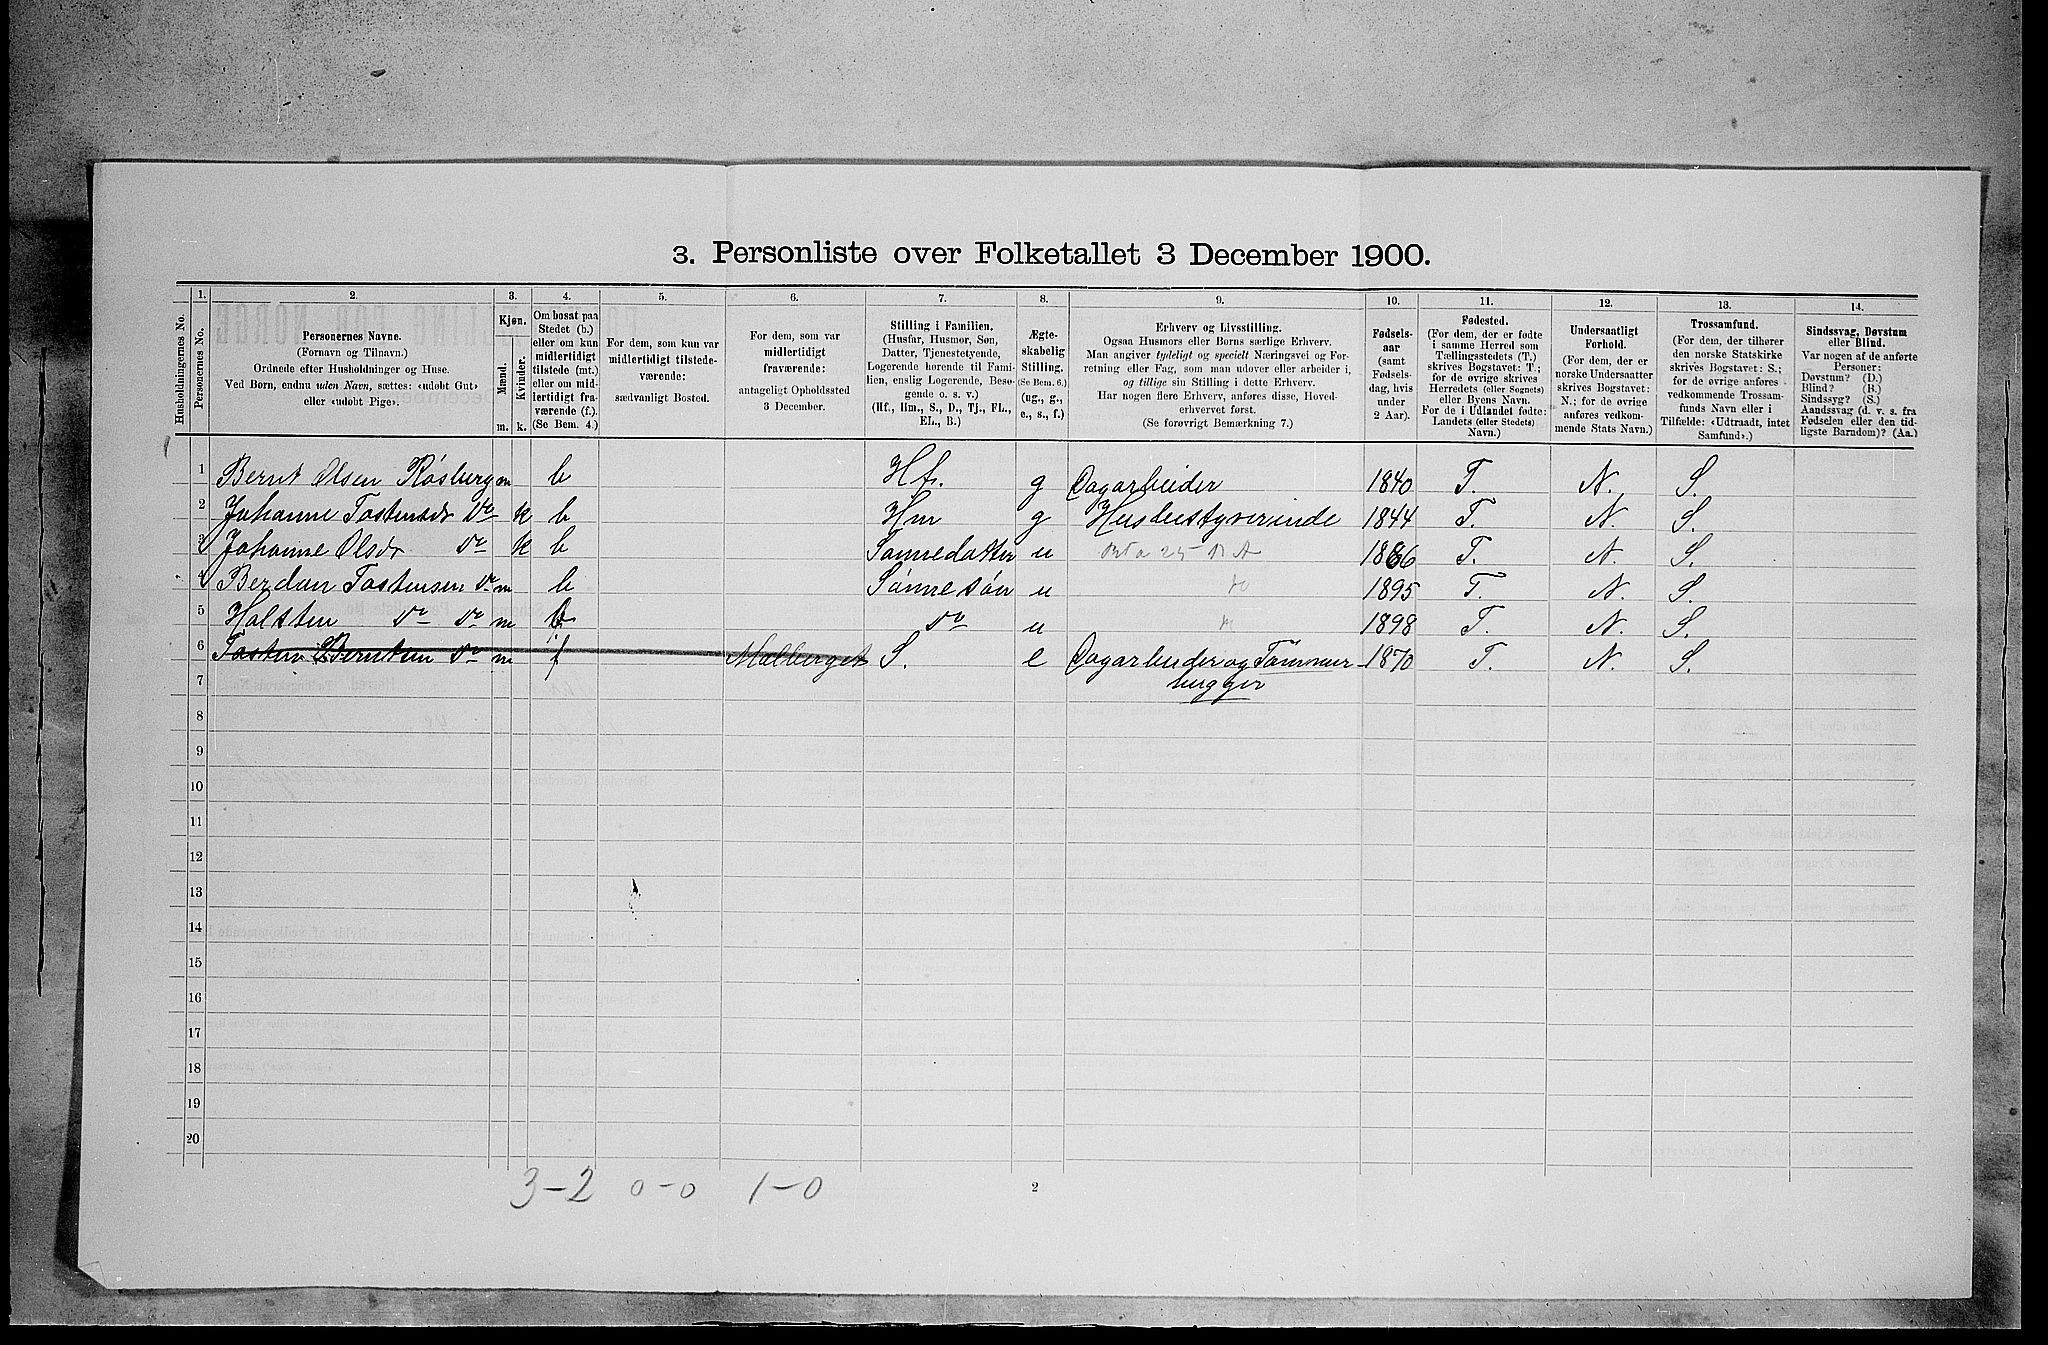 3. Personliste over Folketallet 3 December 1900.
Husholdningernes No.
1.
Personernes No.
2.
Personernes Navne.
(Fornavn og Tilnavn.)
Ordnede efter Husholdninger og Huse.
Ved Børn, endnu uden Navn, sættes: «udøbt Gut»
eller «udøbt Pige».
3.
Kjøn.
Mænd.
Kvinder.
m.
k.
4.
Om bosat paa
Stedet (b.)
eller om kun
midlertidigt
tilstede (mt.)
eller om mid-
lertidigt fra-
værende (f.).
(Se Bem. 4.)
5.
For dem, som kun var
midlertidigt tilstede-
værende:
sædvanligt Bosted.
6.
For dem, som var
midlertidigt
fraværende:
antageligt Opholdssted
3 December.
7.
Stilling i Familien.
(Husfar, Husmor, Søn,
Datter, Tjenestetyende,
Logerende hørende til Fami-
lien, enslig Logerende, Besø-
gende o. s. v.)
(Hf., Hm., S., D., Tj., FL.,
EL., B.)
8.
Ægte-
skabelig
Stilling.
(Se Bem. 6.)
(ug., g.,
e., s., f.)
9.
Erhverv og Livsstilling.
Ogsaa Husmors eller Børns særlige Erhverv.
Man angiver tydeligt og specielt Næringsvei og For-
retning eller Fag, som man udøver eller arbeider i,
og tillige sin Stilling i dette Erhverv.
Har nogen flere Erhverv, anføres disse, Hoved-
erhvervet først.
(Se forøvrigt Bemærkning 7.)
10.
Fødsels-
aar
(samt
Fødsels-
dag, hvis
under
2 Aar).
11.
Fødested.
(For dem, der er fødte
i samme Herred som
Tællingsstedets (T.)
skrives Bogstavet: T.;
for de øvrige skrives
Herredets (eller Sognets)
eller Byens Navn.
For de i Udlandet fødte:
Landets (eller Stedets)
Navn.)
12.
Undersaatligt
Forhold.
(For dem, der er
norske Undersaatter
skrives Bogstavet:
N.; for de øvrige
anføres vedkom-
mende Stats Navn.)
13.
Trossamfund.
(For dem, der tilhører
den norske Statskirke
skrives Bogstavet: S.;
for de øvrige anføres
vedkommende Trossam-
funds Navn eller i
Tilfælde: «Udtraadt, intet
Samfund».)
14.
Sindssvag, Døvstum
eller Blind.
Var nogen af de anførte
Personer:
Døvstum? (D.)
Blind? (B.)
Sindssyg? (S.)
Aandssvag (d. v. s. fra
Fødselen eller den tid-
ligste Barndom)? (Aa.)
1 Bernt Olsen Røsberg m b Hf. g Dagarbeider 1840 T. N. S.
2 Johanne Tostensdr Do k b Hm g Husbestyrerinde 1844 T. N. S.
3 Johanne Olsdr do k b Sønnedatter u 1886 T. N. S.
4 Berdon Tostensen do m b Sønnesøn u 1895 T. N. S.
5 Halsten do do m b do u 1898 T. N. S.
6 Tosten Berntsen do m f Malberget S. e Dagarbeider og Tømmer- 1870 T. N. S.
7 hugger
8
9
10
11
12
13
14
15
16
17
18
19
20
3-2 0-0 1-0
2